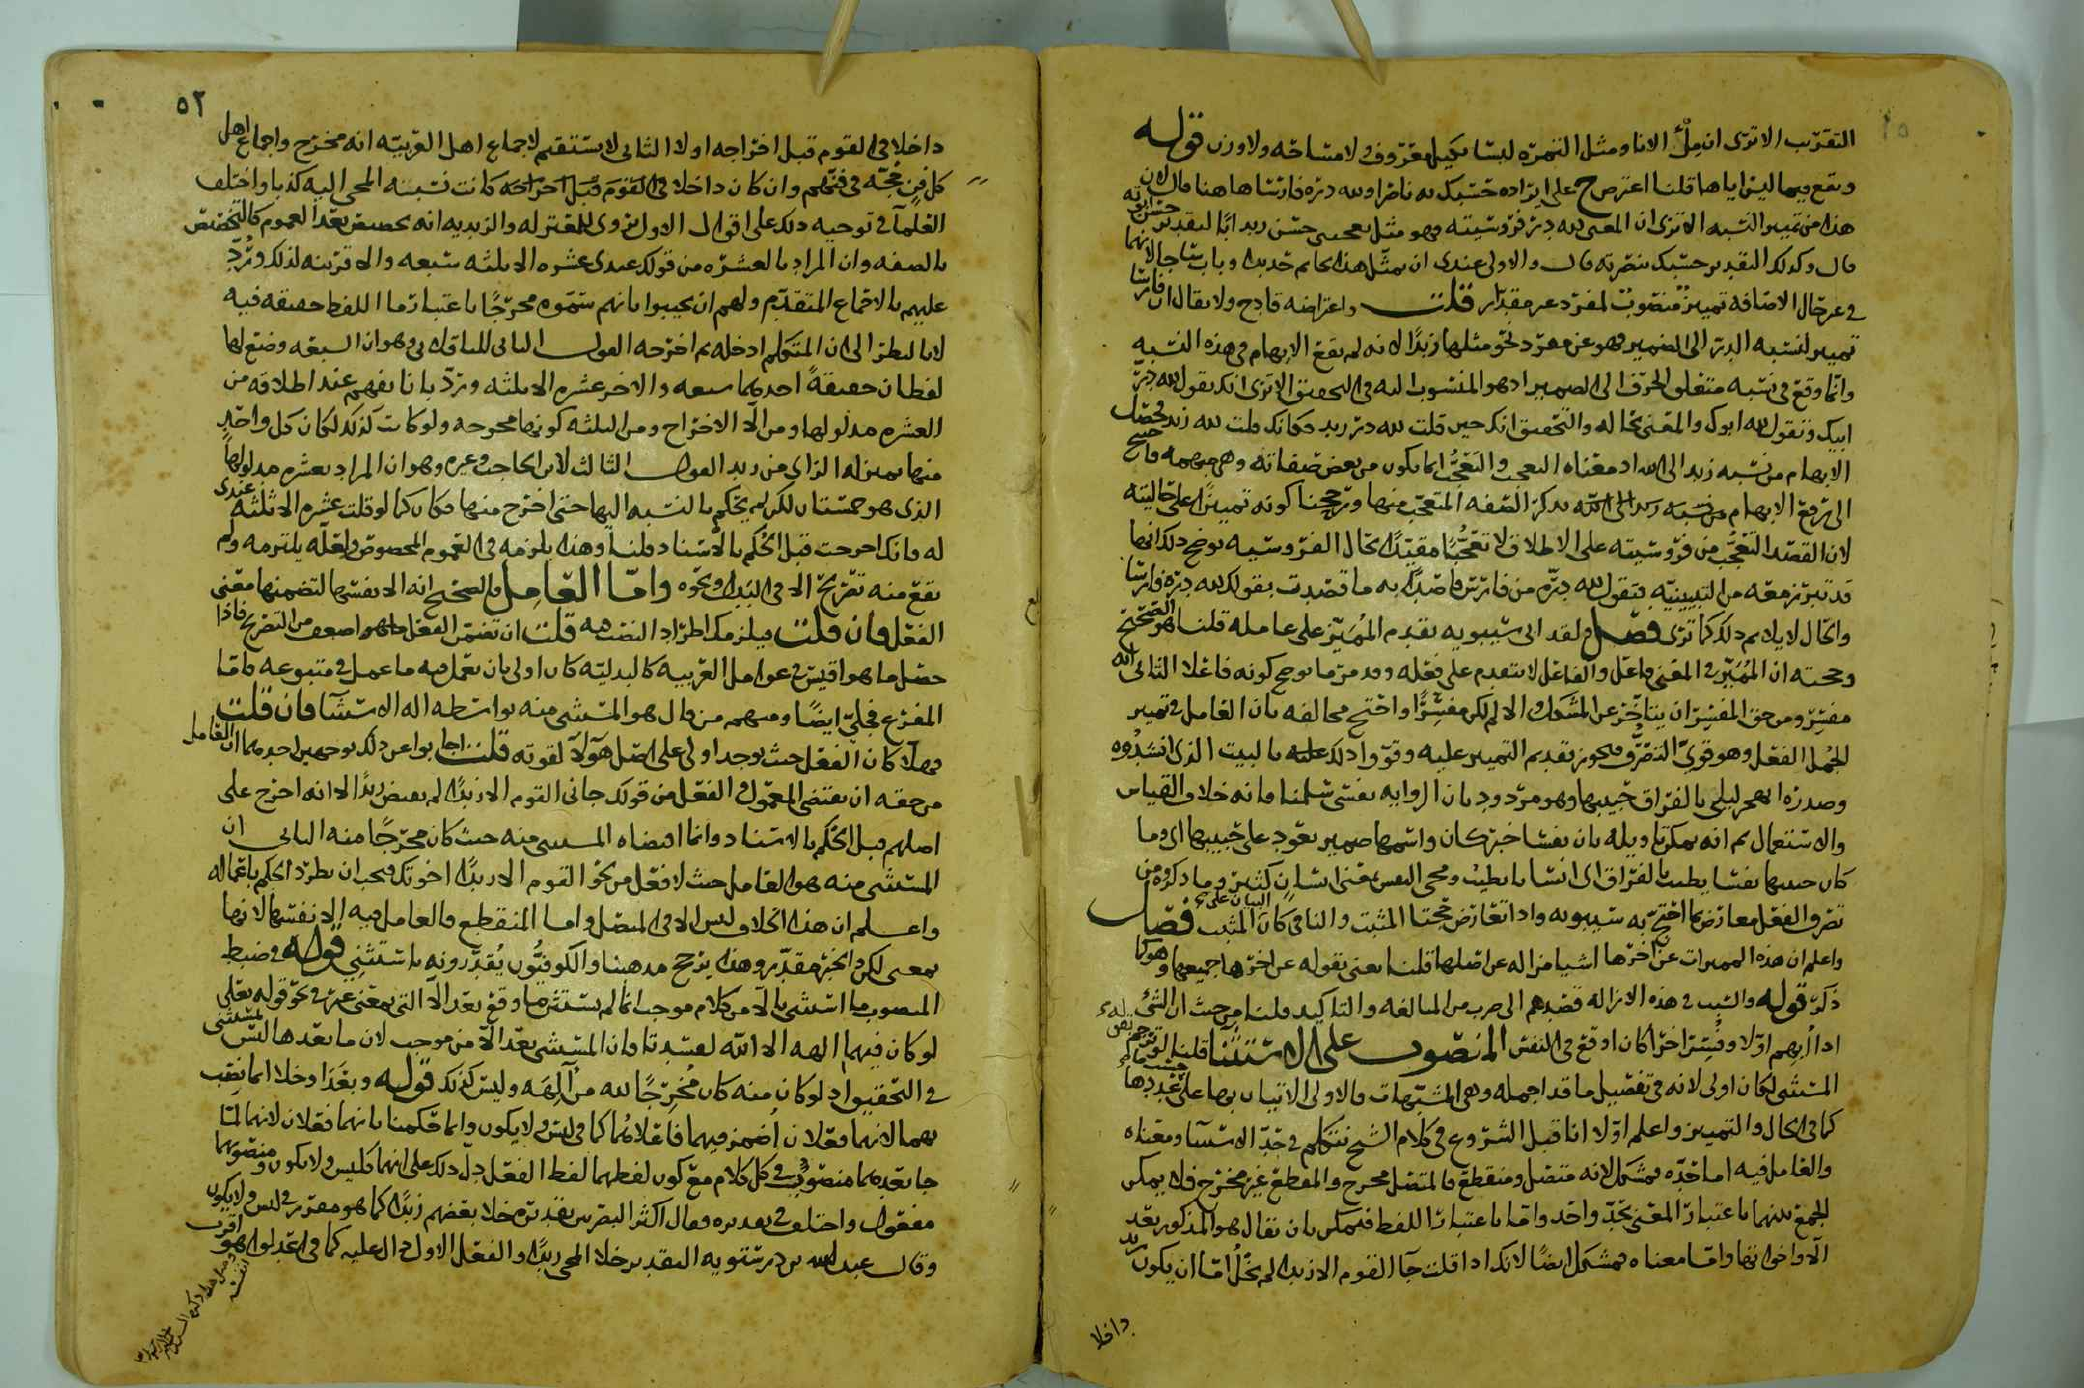 التقريب الا ترى ان ملْأ الانا ومثل التمره ليسا بكيل معروف ولا مساحه ولا وزن قوله
ويقع فيما ليس اياها قلنا اعترض ح على ايراده حسبك به ناصرا ولله دره فارسا هاهنا قال لان
هذا من تمييز النسبه الا ترى ان المعنى لله در فروسيته وهو مثل يعجبني حسن زيد ابًا التقدير حسن ابوته
قال وكذلك التقدير حسبك بنصرته قال والاولى عندى ان يمثل هذا بخاتم حديدا وباب ساجا لانهما
في غير حال الاضافه تمييز منصوب لمفرد غير مقدار قلت واعتراضه قادح ولا يقال ان فارسا
تمييز لنسبه الدر الى الضمير فهو عن مفرد نحو مثلها زبدًا لانه لم يقع الابهام في هذه النسبه
وانما وقع في نسبه متعلق الحرف الى الضمير اذ هو المنسوب اليه في التحقيق الا ترى انك تقول لله در
ابيك وتقول لله ابوك والمعنى بحاله والتحقيق انك حين قلت لله در زيد فكانك قلت لله زيد فحصل
الابهام من نسبه زيد الى الله اذ معناه العجب والتعجُّب انما يكون من بعض صفاته وهي مبهمه فاحتيج
الى ترفع الابهام من نسبه زيد الى الله بذكر الصفه المتعجب منها ورجحنا كونه تمييزًا على حاليته
لان القصد التعجُّب من فروسيته على الاطلاق لا تعجُّبًا مقيّدًا بحال الفروسيه يوضح ذلك انها
قد تبرز معه من التبيينيّه فتقول لله درّه من فارس قاصدًا به ما قصدت بقولك لله دره فارسا
والحال لا يلائم ذلك كما ترى فصل ولقد ابى سيبويه تقدم المُمَيّز على عامله قلنا هو الصحيح
وحجته ان المُمَيّز في المعنى فاعل والفاعل لا يتقدم على فعله وقد مر ما يوضح كونه فاعلا الثاني انه
مفسِّر ومن حق المفسِّر ان يتاخر عن المشكل والا لم يكن مفسِّرًا واحتج مخالفه بان العامل في تمييز
الجُمل الفعل وهو قوي التصرُّف فيجوز تقديم التمييز عليه وقووا ذلك عليه بالبيت الذي انشدُوه
وصدره اتهجر ليلى بالفراق حبيبها وهو مردود بان الروايه نفسي سلمنا فانه خلاف القياس
والاستعمال ثم انه يمكن تاويله بان نفسا خبر كان واسمها ضمير يعود على حبيبها اي وما
كان حبيبها نفسا يطيب بالفراق اي انسانا يطيب ومجى النفس بمعنى انسانٍ كثير وما ذكروه من
تصرف الفعل معارض بما احتج به سيبويه واذا تعارض حجتا المثبت والنافي كان المثبت فصل
البيان على
واعلم ان هذه المميزات عن اخرها اشيا مزاله عن اصلها قلنا يعني بقوله عن اخرها جميعها وهو كما
ذكر قوله والسبب في هذه الازاله قصدهم الى ضرب من المبالغه والتاكيد قلنا من حيث ان الشئ
اذا اُبهم اوّلا وفُسِّر اخرًا كان اوقع في النفس المنصوب على الاستثنا قلنا لو ترجم
المستثنى لكان اولى لانه في تفصيل ما قد اجمله وهي المشبّهات فالاولى الاتيان بها على عددها
كما في الحال والتمييز واعلم اوّلا انا قبل الشروع في كلام الشيخ نتكلم في حدّ الاستثنا ومعناه
والعامل فيه اما حدّه فمشكل لانه متصل ومنقطع فالمتصل مخرج والمنقطع غير مخرج فلا يمكن
الجمع بينهما باعتبار المعنى بحدّ واحد واما باعتبار اللفظ فيمكن بان يقال هو المذكور بعد
الّا واخواتها واما معناه فمشكل ايضًا لانك اذا قلت جآ القوم الا زيدا لم يخلُ اما ان يكون زيد
داخلا
٥٢
داخلا في القوم قبل اخراجه او لا الثاني لا يستقيم لاجماع اهل العربيّه انه مخرج واجماع اهل
كل فن حجّه في فنهم وان كان داخلا في القوم قبل اخراجه كانت نسبته المجى اليه كذبا واختلف
العلمآ في توجيه ذلك على اقوال الاول يروى للمعتزله والزيديه انه تخصيص بعد العموم كالتخصيص
بالصفه وان المراد بالعشره من قولك عندى عشره الا ثلثه سبعه والا قرينه لذلك ورُدّ
عليهم بالاجماع المتقدّم ولهم ان يجيبوا بانهم سَمّوه مخرجًا باعتبار ما اللفظ حقيقه فيه
لا بالنظر الى ان المتكلم ادخله ثم اخرجه القول الثاني للباقلاني وهو ان السبعه وضع لها
لفظان حقيقةً احدهما سبعه والاخر عشره الا ثلثه ورُدّ بانا نفهم عند اطلاقه من
العشره مدلولها ومن الّا الاخراج ومن الثلثه كونها مخرجه ولو كانت كذلك لكان كل واحد
منها بمنزله الزاى من زيد القول الثالث لابن الحاجب وغيره وهو ان المراد بعشره مدلولها
الذي هو خمستان لكن لم يحكم بالنسبه اليها حتى اخرج منها فكان كما لو قلت عشره الا ثلثه عندى
له فانك اخرجت قبل الحكم بالاسناد قلنا وهذا يلزمه في العموم المخصوص ولعلّه يلتزمه ولم
يقع منه تفريع الا في البدل ونحوه وامّا العامل فالصحيح انه الا نفسها لتضمنها معنى
الفعل فان قلت فيلزمك اطراد النصب به قلت ان تضمن الفعل فهو اضعف من التفريع فاذا
حصل ما هو اقيس في عوامل العربيه كالبدليّه كان اولى بان يعمل فيه ما عمل في متبوعه فاما
المفرّغ فجليّ ايضًا ومنهم من قال هو المستثنى منه بواسطه اله الاستثنآ فان قلت
فهلّا كان الفعل حيث يوجد اولى على اصل هؤلآ لقوته قلت اجابوا عن ذلك بوجهين احدهما ان العامل
من حقه ان يقتضي المعمول والفعل من قولك جاني القوم الا زيدًا لم يقتض زيدًا الا انه اخرج على
اصلهم قبل الحكم بالاسناد وانما اقتضاه المستثنى منه حيث كان مخرجًا منه الثاني ان
المستثنى منه هو العامل حيث لا فعل من نحو القوم الا زيدًا اخوتك فيجب ان يطرد الحكم باعماله
واعلم ان هذا الخلاف ليس الا في المتصل واما المنقطع فالعامل فيه الا نفسها لانها
بمعنى لكن والخبر مقدّر وهذا يرجح مذهبنا والكوفيُّون يُقدّرونه باستثني قوله في ضبط
المنصوب ما استثنى بالّا من كلام موجب انما لم يستثن ما وقع بعد الّا التي بمعنى غير في نحو قوله تعلى
لو كان فيهما الهه الا الله لفسدتا فان المستثنى بعد الّا من موجب لان ما بعدها ليس مستثنى
في التحقيق اذ لو كان منه كان مُخرجًا لله من الهه وليس كذلك قوله وبعدَ عدا وخلا انما نصب
بهما لانهما فعلان اُضمر فيهما فاعلاهُما كما في ليس ولا يكون وانما حكمنا بانهما فعلان لانهما لمّا
جا بعدهما منصوب في كل كلام مع كون لفظهما لفظ الفعل دلّ ذلك على انهما كليس ولا يكون ومنصوبهما
مفعول واختلف في تقديره فقال اكثر البصريين تقديره خلا بعضهم زيدًا كما هو مقرر في ليس ولا يكون
وقال عبد الله بن درستويه التقدير خلا المجى زيدًا والفعل الاول دال عليه كما في اعدلوا هو اقرب